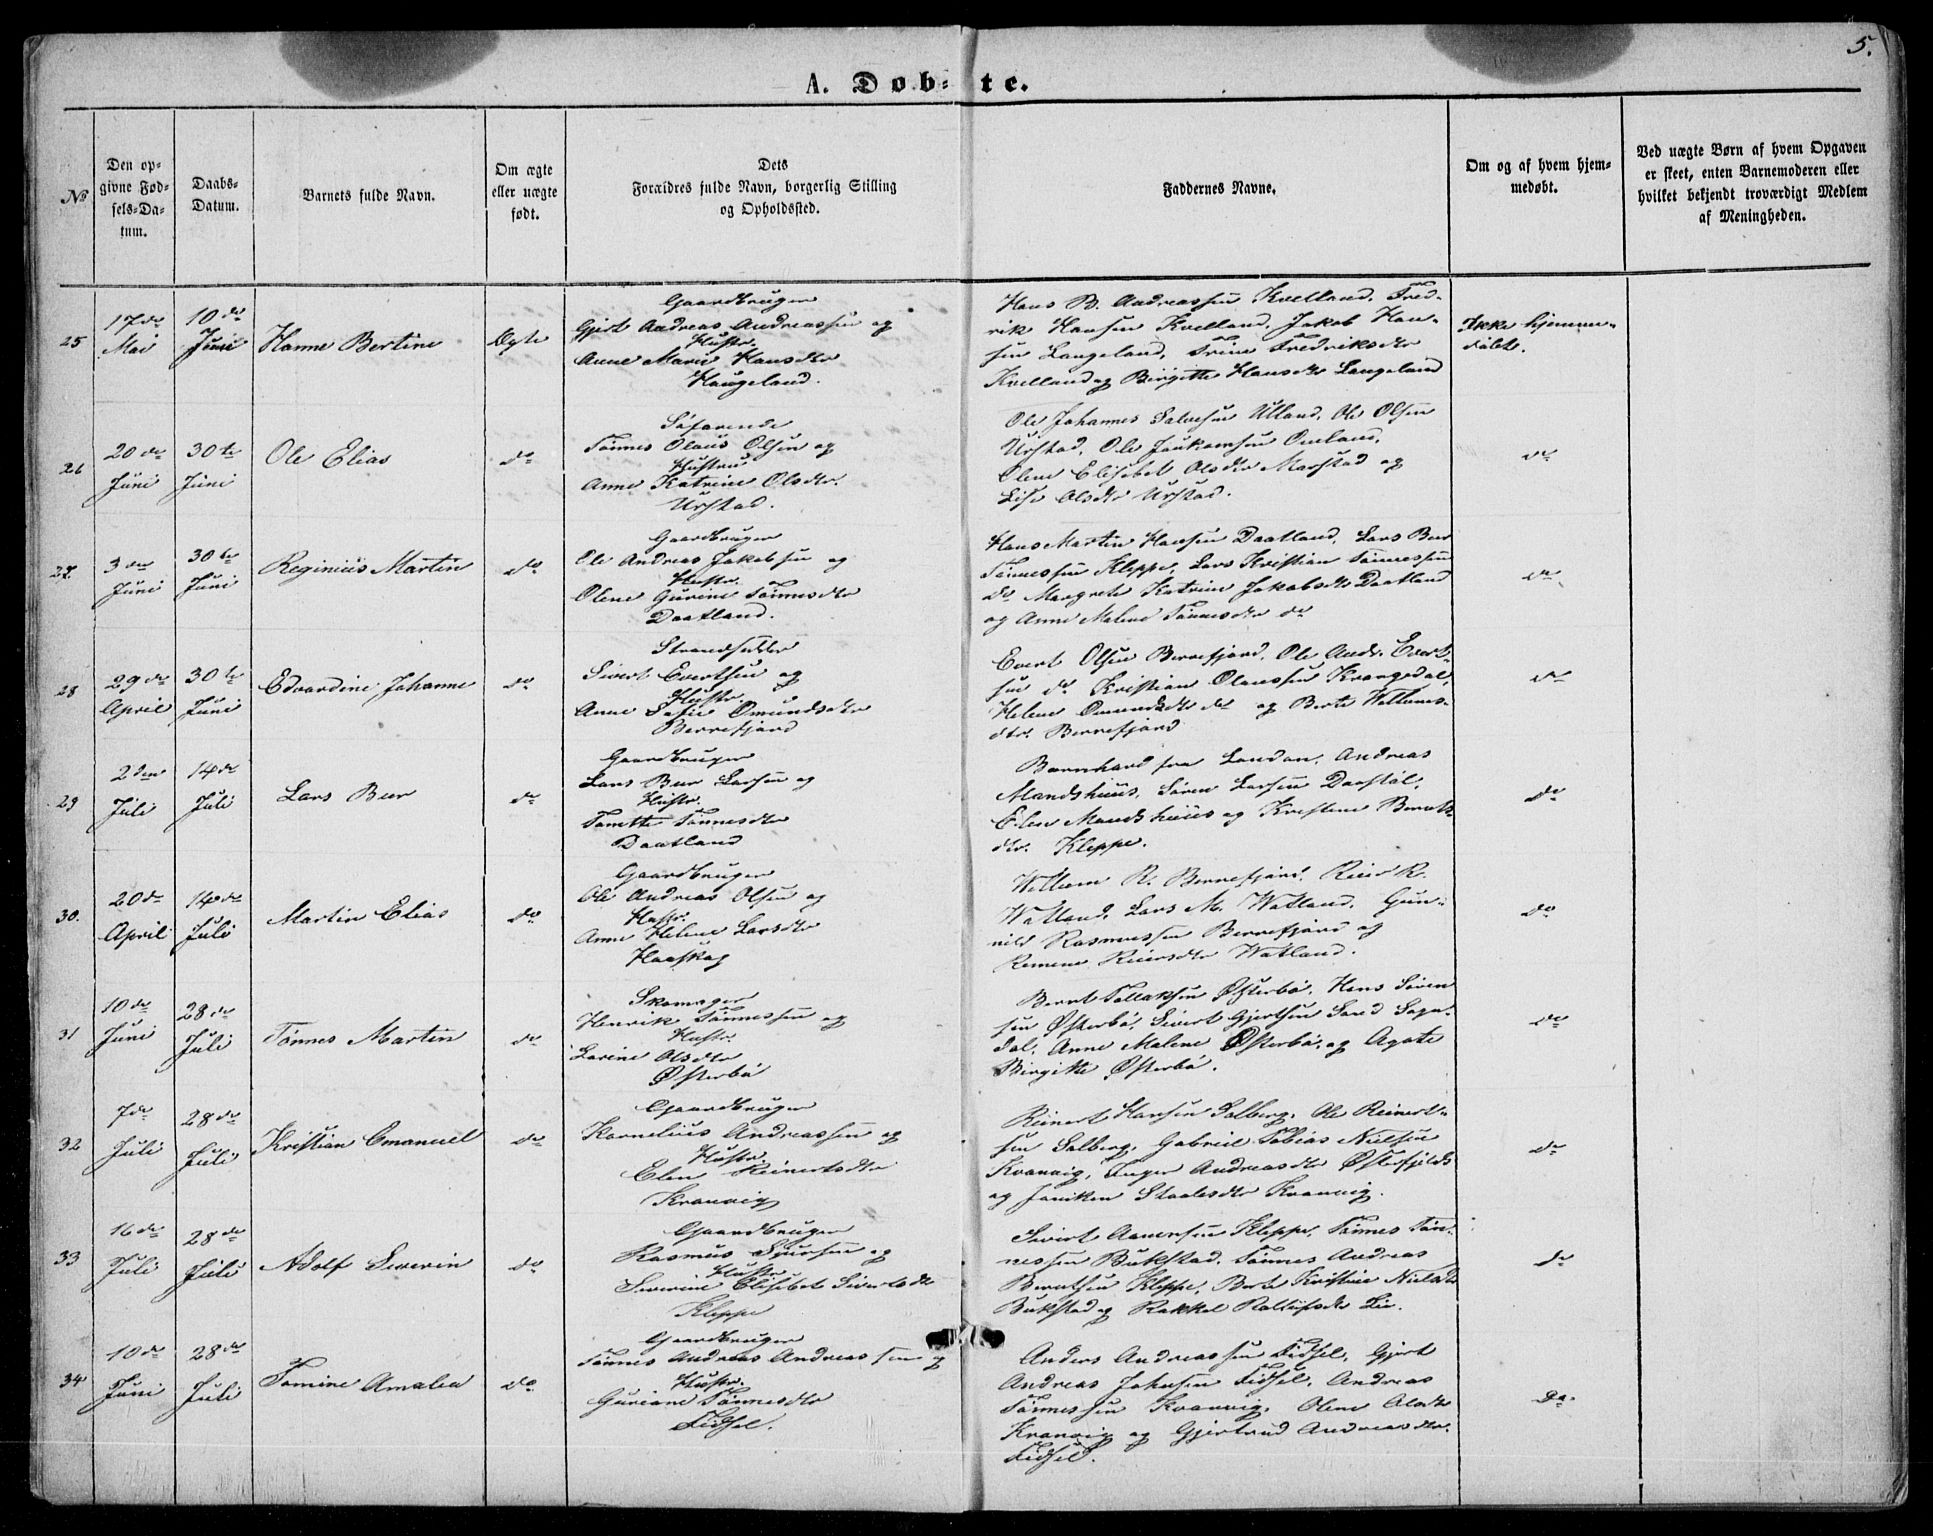 5.
A. Døbte.
No
Den opgivne Fødsels-Datum.
Daabs-Datum.
Barnets fulde Navn.
Om ægte eller uægte født.
Dets Forældres fulde Navn, borgerlig Stilling og Opholdssted.
Faddernes Navne.
Om og af hvem hjemmedøbt.
Ved uægte Børn af hvem Opgaven er skeet, enten Barnemoderen eller hvilket bekjendt troværdigt Medlem af Meningheden.
25
17de Mai
10de Juni
Hanne Bertine
Ægte
Gaardbruger
Gjert Andreas Andreassen og
Hustr.
Anne Marie Hansdtr
Haugeland.
Hans B. Andreassen Kvelland, Fred-
rik Hansen Kvelland, Jakob Han-
sen Langeland, Trine Fredriksdtr
Kvelland og Birgitte Hansdtr Langeland
Ikke hjemme-
døbt.
26
20de Juni
30te Juni
Ole Elias
do
Søfarende
Tønnes Olaus Olsen og
Hustru
Anne Katrine Olsdtr.
Urstad.
Ole Johannes Salvesen Ulland, Ole Olsen
Urstad, Ole Joakomsen Omland,
Olene Elisebet Olsdtr Marstad og
Lise Olsdtr Urstad.
do
27.
3die Juni
30te Juni
Reginius Martin
do
Gaardbruger
Ole Andreas Jakobsen og
Hustr.
Olene Gurine Tønnesdtr
Daatland.
Hans Martin Hansen Daatland, Lars Ber
Tønnessen Kleppe, Lars Kristian Tønnessen
do Margrete Katrine Jakobsdtr Daatland
og Anne Malene Tønnesdtr do
do
28
29de April
30te Juni
Edvardine Johanne
do
Strandsidder
Sivert Evertsen og
Hustr.
Anne Sofie Omundsdtr
Berrefjord
Evert Olsen Berrefjord, Ole Andr. Evert-
sen do Kristian Olaussen Krangedal,
Helene Omundsdtr do og Berte Wellums-
dtr. Berrefjord
do
29
2den Juli
14de Juli
Lars Ber
do
Gaardbruger
Lars Ber Larsen og
Hustr.
Tonette Tønnesdtr
Daatland
Bernhard fra London, Andreas
Mandshuus, Søren Larsen Daastøl,
Elen Mandshuus og Kristene Berents-
dtr. Kleppe.
do
30.
20de April
14de Juli
Martin Elias
do
Gaardbruger
Ole Andreas Olsen og
Hustr.
Anne Helene Larsdtr
Haaskog
Wellum R. Berrefjord, Reier R.
Watland, Lars M. Watland, Gun-
nild Rasmussen Berrefjord og
Remene Reiersdtr Watland.
do
31
10de Juni
28de Juli
Tønnes Martin
do
Skomager
Henrik Tønnessen og
Hustr.
Lorine Olsdtr
Østerbø
Bernt Tollaksen Østerbø, Hans Søren
sen Østerbø, Sivert Gjertsen Sord Sogn-
dal, Anne Malene Østerbø, og Agate
Birgitte Østerbø.
do
32
7de Juli
28de Juli
Kristian Emanuel
do
Gaardbruger
Kornelius Andreassen og
Hustr.
Elen Reinertsdtr
Kvanvig
Reinert Hansen Solberg, Ole Reinert-
sen Solberg, Gabriel Tobias Nielsen
Kvanvig, Inger Andreasdtr Østerfjeld
og Janiken Staalesdtr Kvanvig.
do
33
16de Juli
28de Juli
Adolf Severin
do
Gaardbruger
Rasmus Sjursen og
Hustr.
Severine Elisebet Sivertsdtr
Kleppe
Sivert Aanensen Kleppe, Tønnes Tøn-
nessen Bukstad, Tønnes Andreas
Berntsen Kleppe, Berte Kristine Nielsdtr
Bukstad og Rakkel Rollufsdtr Lie.
do
34
10de Juni
28de Juli
Tomine Amalea
do.
Gaardbruger
Tønnes Andreas Andreassen og
Hustr.
Guriane Tønnesdtr
Fidsel.
Anders Andreassen Fidsel, Gjert
Andreas Johnsen Fidsel, Andreas
Tønnessen Kvanvig, Olene Olsdtr
Kvanvig og Gjertrud Andreasdtr.
Fidsel.
do.